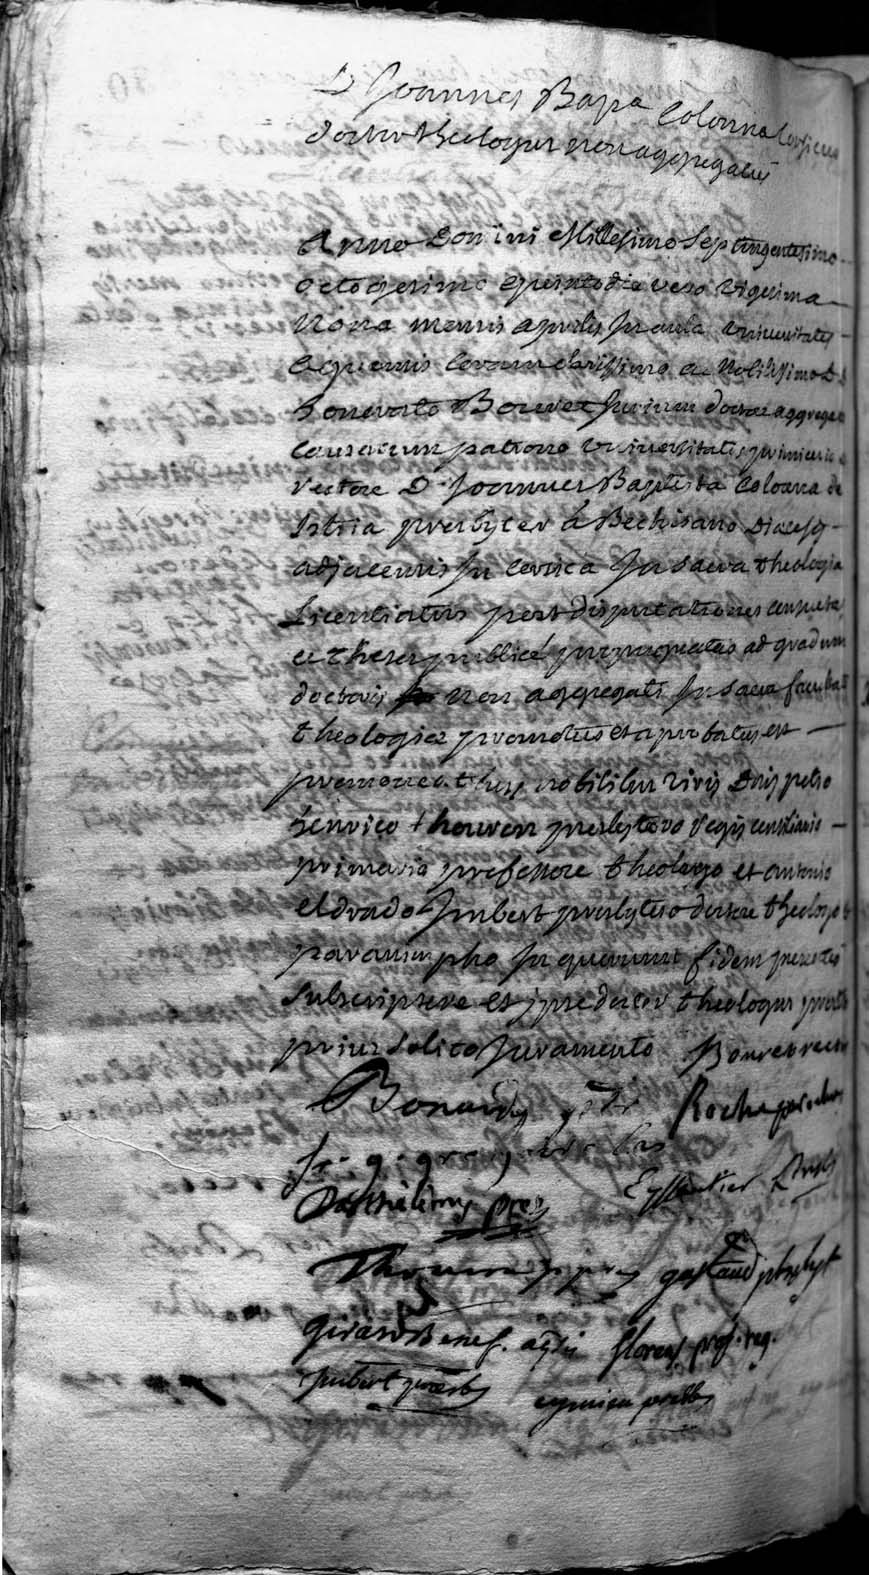 D Joannes Bapa Colonna Corsicus
doctor theologus non aggregatus
Anno Domini Millesimo Septingentesimo
octogesimo quinto die vero vigesima
nona mensis aprilis In aula universitatis
aquensis coram clarissimo ac Nobilissimo D D
honorato Bouvet Jurium doctore aggregato
causarum patrono universitatis primicerio
rectore D. Joannes Baptista Colonna de
Istria presbyter a Bechisano Diocesis
adjacensis In Corsica In sacra theologia
Licentiatus post disputationes consuetas
et theses publice propugnatas ad gradum
doctoris non aggregati In sacra facultate
theologiae promotus et aprobatus est
promoventibus nobilibus viris Dnis petro
henrico thouron presbytero regis consiliario
primario professore theologo et antonio
eldrado Imbert presbytero doctore theologo
paranimpho In quorum fidem praesentes
subscripsere et ipse doctor theologus praestito
prius solito Juramento Bouvet rector
Bonardy Roche parochus
fr. g.
Barthelemy pres Eyssautier
Thouron ppres gastaud presbyt
girard Benef. aqsis florens prof. reg.
Imbert presb